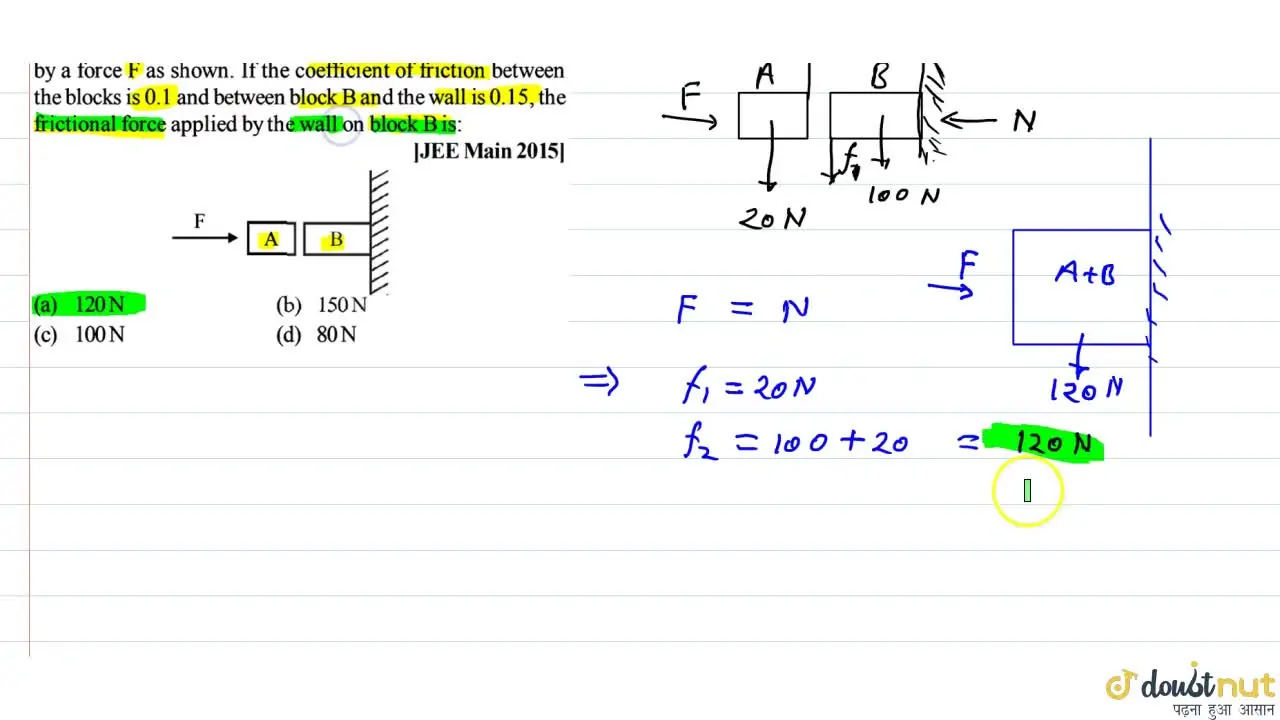 by a force F as shown. If the coefficient of friction between
the blocks is 0.1 and between block B and the wall is 0.15, the
frictional force applied by the wall on block B is:
]JEE Main 2015]
F
A
B
(a) 120 N (b) 150 N
(c) 100 N (d) 80 N
A B
F
N
f1
100 N
20 N
F
A+B
120 N
F = N
⇒ f1 = 20 N
f2 = 100 + 20 = 120 N
doubtnut
पढ़ना हुआ आसान